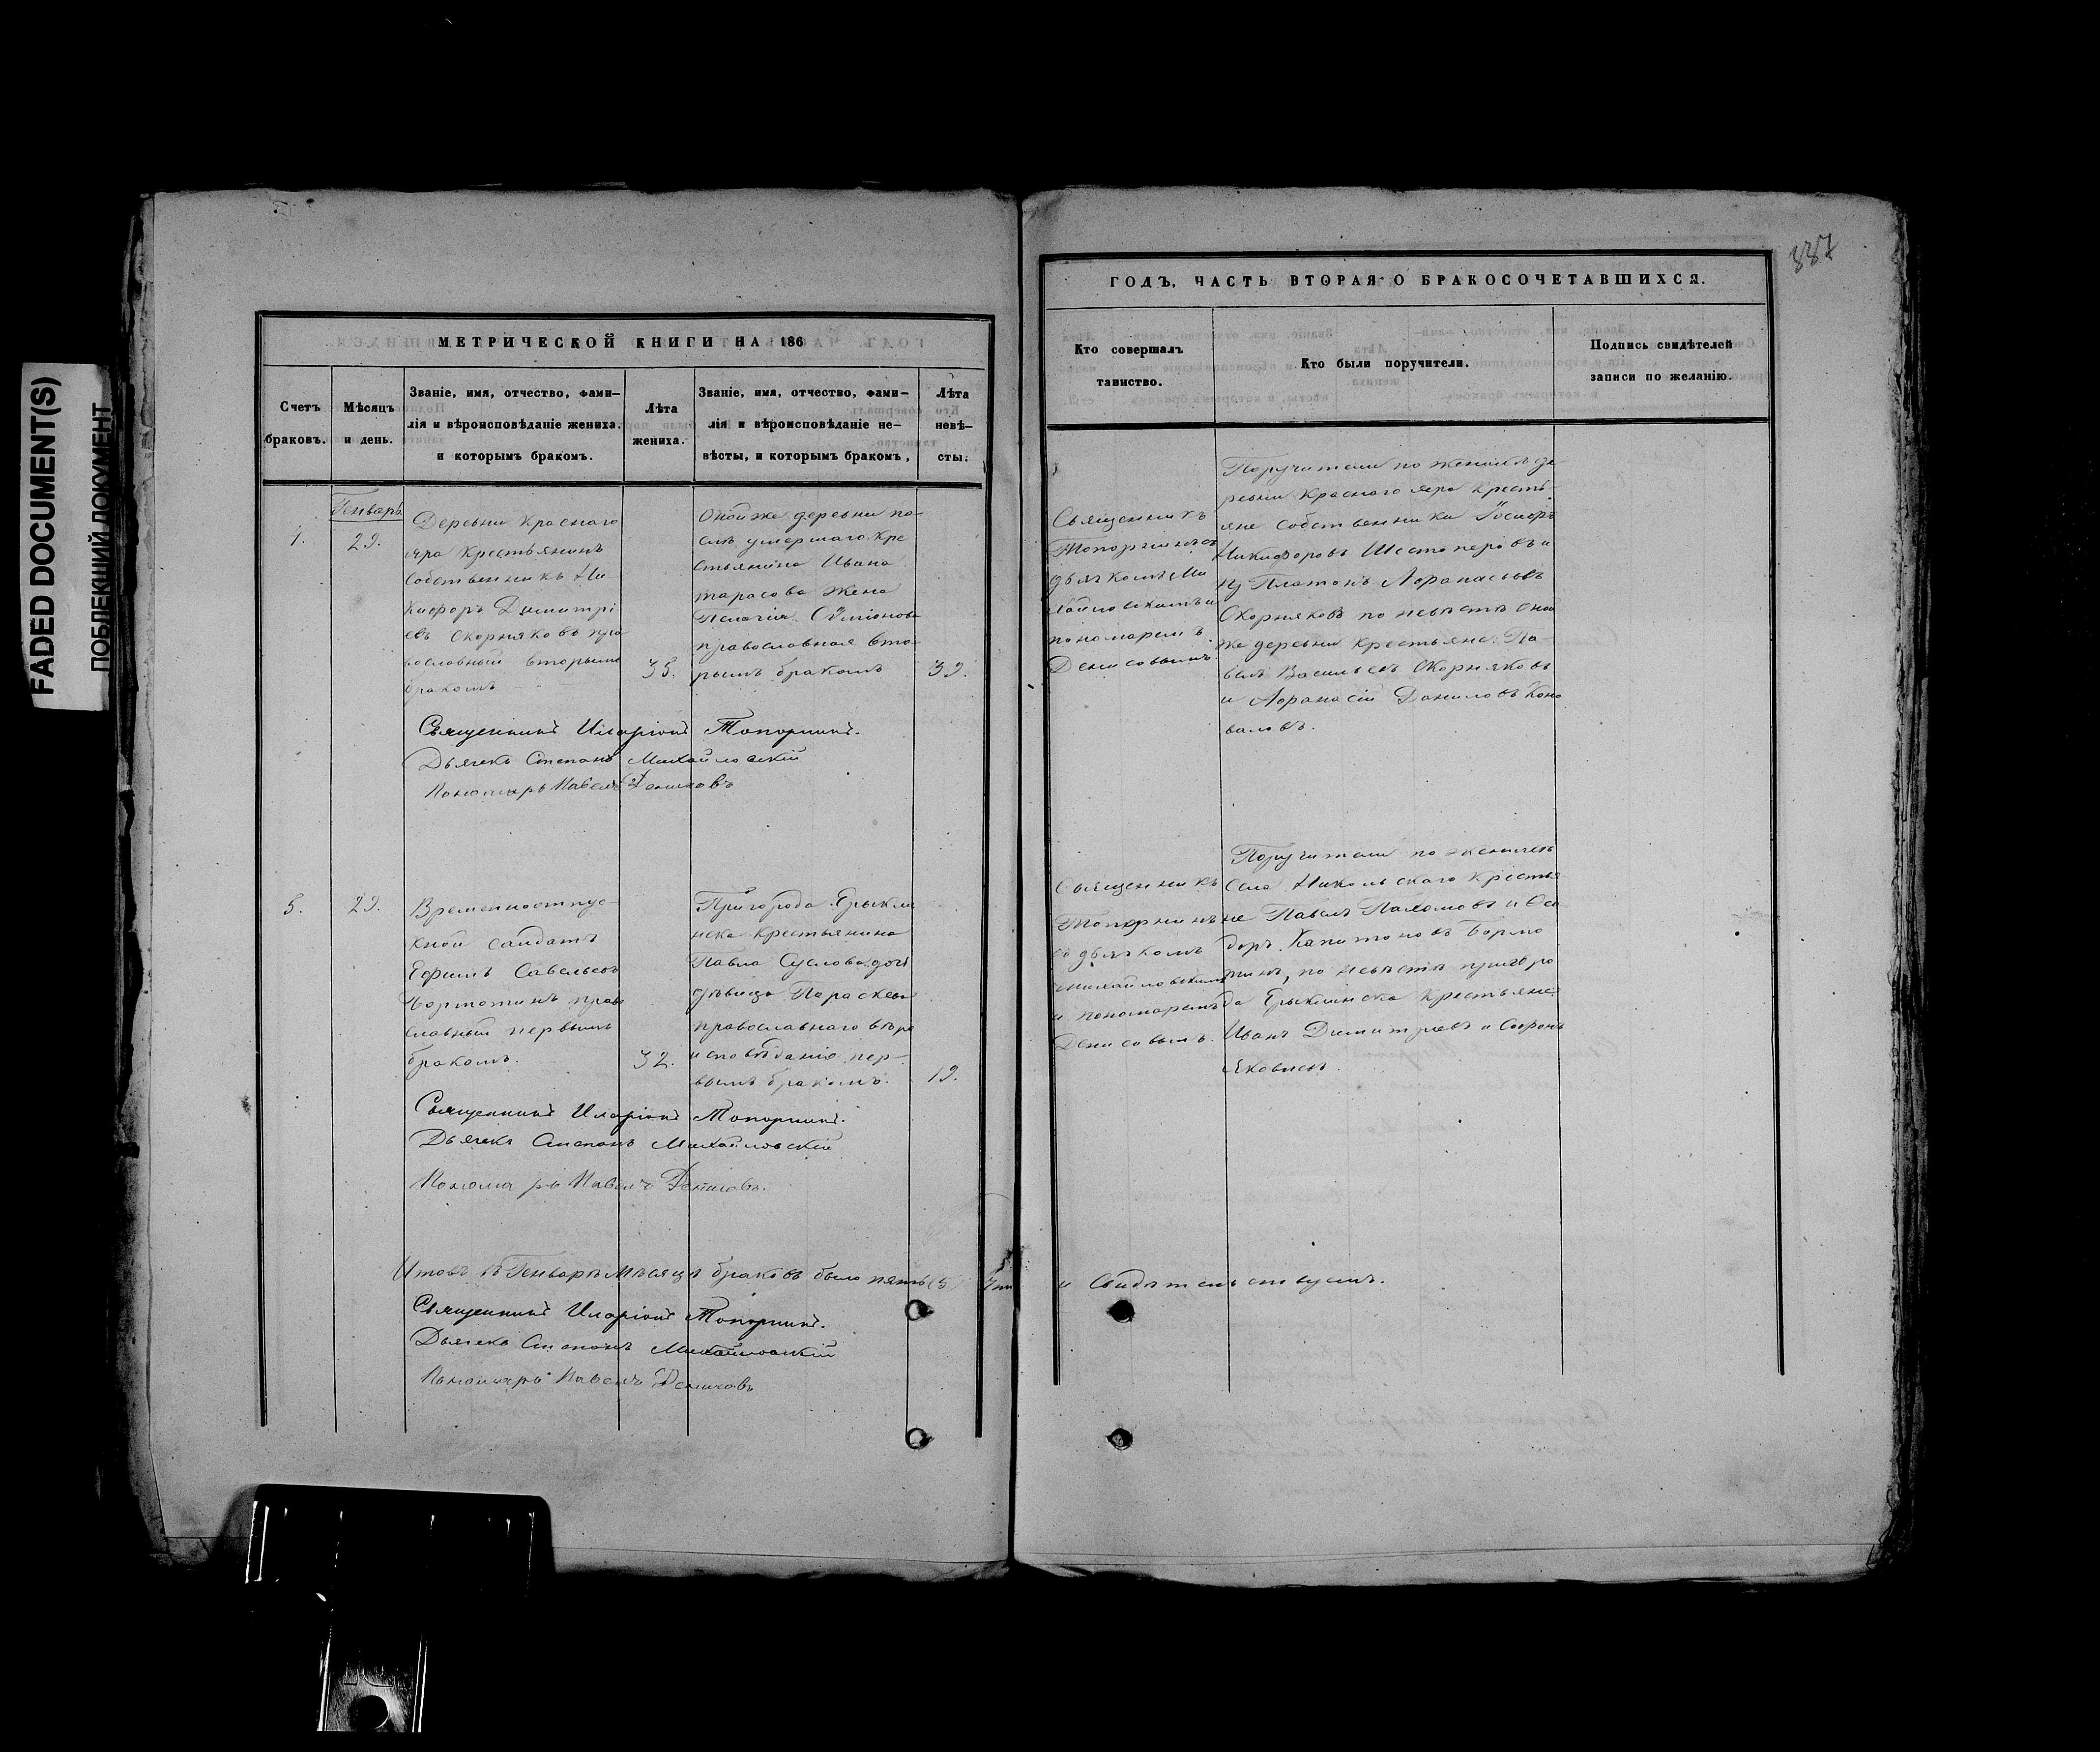 FADED DOCUMENT(S)
ПОБЛЕКШИЙ ДОКУМЕНТ
МЕТРИЧЕСКОЙ КНИГИ НА 186
Счетъ
браковъ.
Мѣсяцъ
и день.
Званіе, имя, отчество, фами-
лія и вѣроисповѣданіе жениха.
и которымъ бракомъ.
Лѣта
жениха.
Званіе, имя, отчество, фами-
лія и вѣроисповѣданіе не-
вѣсты, и которымъ бракомъ,
Лѣта
невѣ-
сты.
Генварь
29.
Деревни Краснаго
яра Крестьянинъ
Собственникъ Ни
кифоръ Димитрі
евъ Скорняковъ пра
вославный вторымъ
бракомъ
35.
Оной же деревни по-
слѣ умершаго Кре
стьянина Ивана
тарасова жена
Пелагія Сѵмеонова
православная вто-
рымъ бракомъ
39.
Священникъ Иларіонъ Топорнинъ.
Дьячекъ Степанъ Михайловскій
Пономарь Павелъ Денисовъ
5.
29.
Временноотпус-
кной солдатъ
Ефимъ Савельевъ
православный первымъ
бракомъ.
32.
Пригорода Ерыкли
нска Крестьянина
Павла Суслова дочь
дѣвица Параскева
православнаго вѣро
исповѣданія, пер-
вымъ бракомъ.
19.
Священникъ Иларіонъ Топорнинъ.
Дьячекъ Степанъ Михайловскій
Пономарь Павелъ Денисовъ.
Итого въ Генварѣ Мѣсяцѣ браковъ было пять (5)
Священникъ Иларіонъ Топорнинъ.
Дьячекъ Степанъ Михайловскій
Пономарь Павелъ Денисовъ
ГОДЪ, ЧАСТЬ ВТОРАЯ О БРАКОСОЧЕТАВШИХСЯ.
Кто совершалъ
таинство.
Кто были поручители.
Подпись свидѣтелей
записи по желанію.
Священникъ
Топорнинъ съ
дьячкомъ Ми
хайловскимъ и
пономаремъ
Денисовымъ.
Поручители по женихѣ де
ревни Краснаго яра Кресть-
яне собственники
Никифоровъ Шестоперовъ и
Платонъ Афанасьевъ
Скорняковъ по невѣстѣ оной
же деревни Крестьяне: Па-
велъ Васильевъ Скорняковъ
и Афанасій Даниловъ Коно
валовъ.
Священникъ
Топорнинъ
съ дьячкомъ
Михайловскимъ
и пономаремъ
Денисовымъ.
Поручители по женихѣ
Села Никольскаго Крестья
не Павелъ Пахомовъ и Си
доръ Капитоновъ Бормо
тинъ, по невѣстѣ пригоро
да Ерыклинска Крестьяне:
Иванъ Димитріевъ и Софронъ
Яковлевъ.
и Свидѣтельствуемъ.